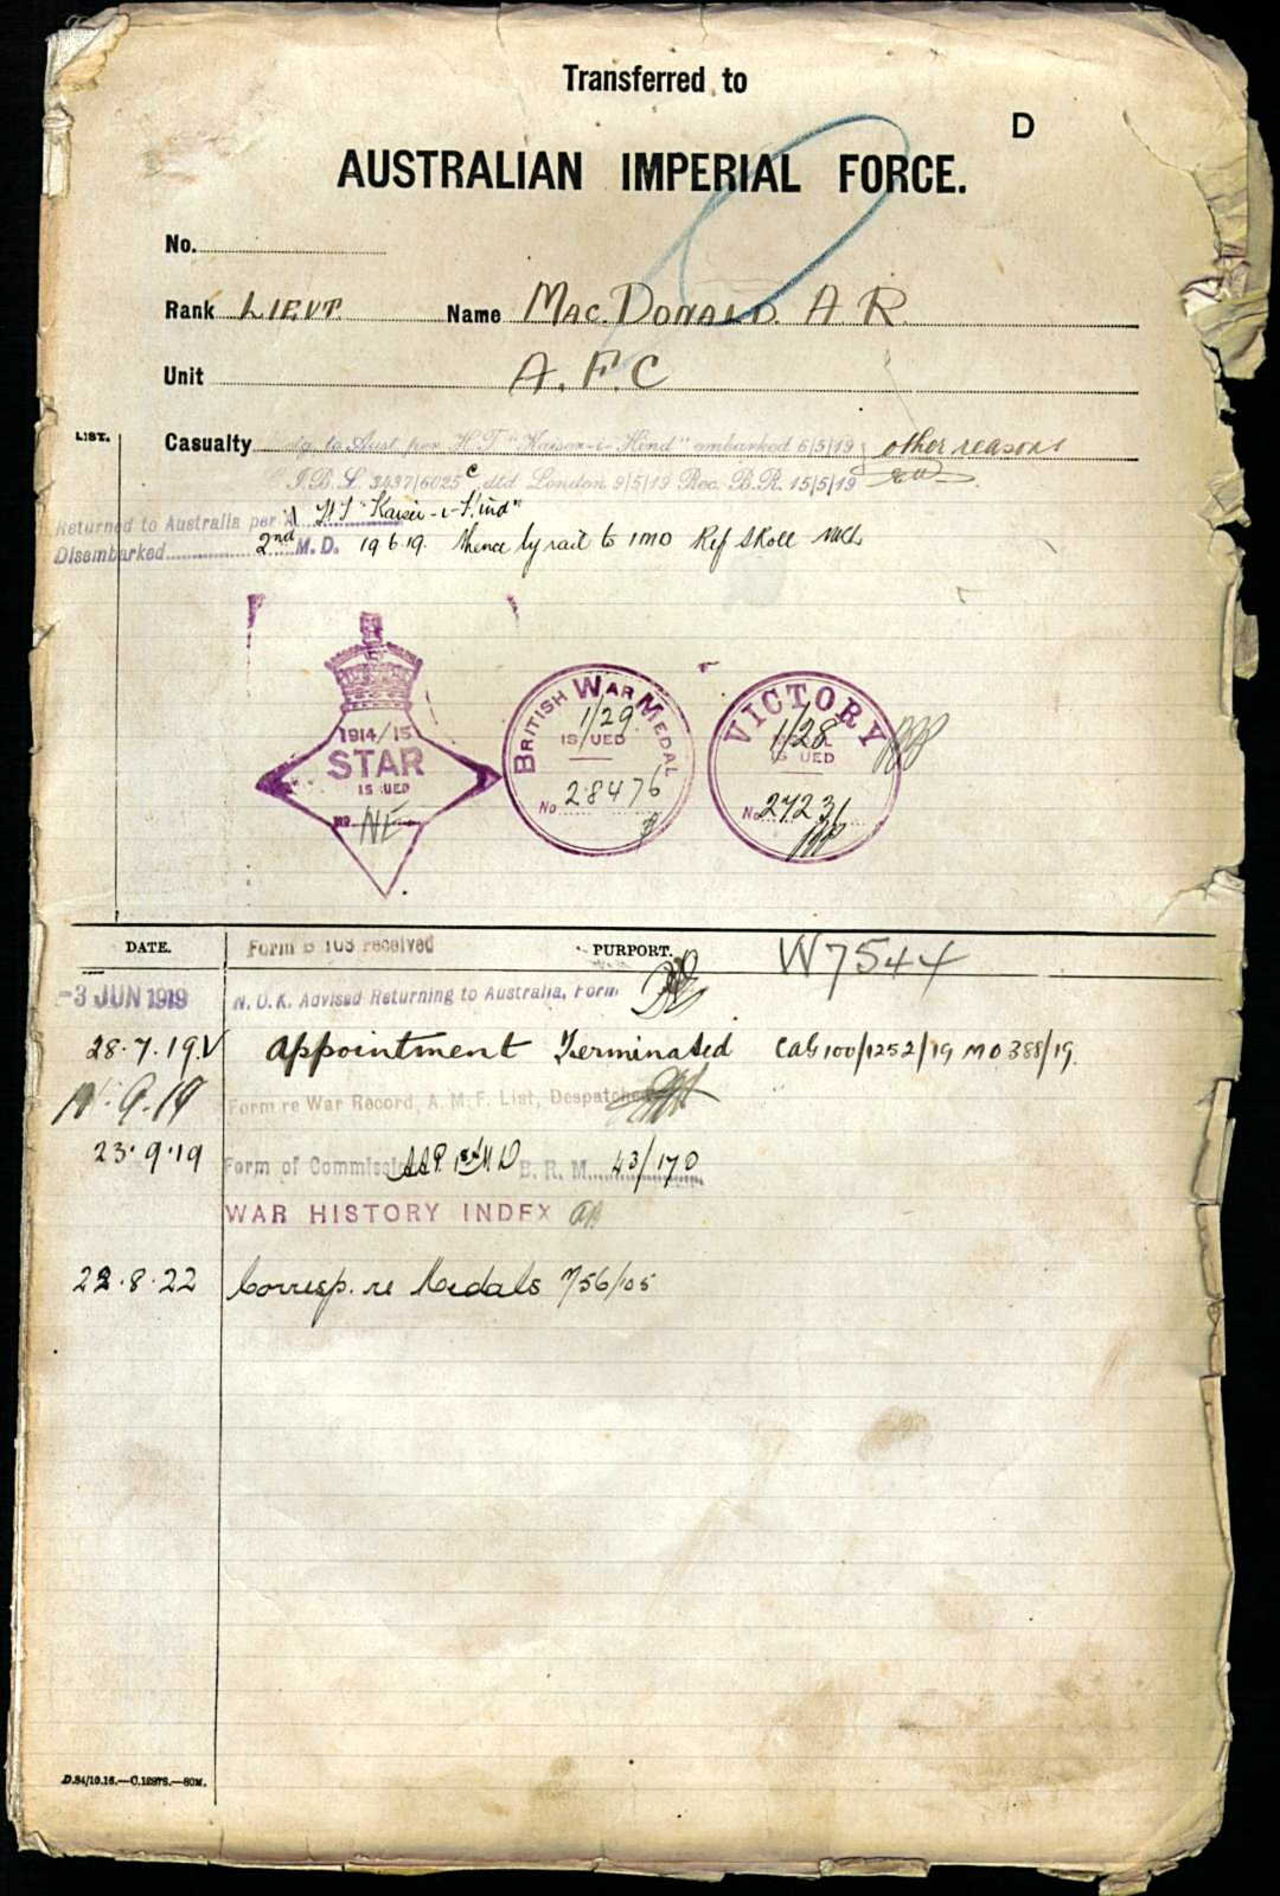 Transferred to
D
AUSTRALIAN IMPERIAL FORCE.
No.
Rank LIEUT. Name MacDONALD. A R.
Unit A.F.C
LIST.
Casualty to Aust. per H.T. "Kaiser-i-Hind" embarked 6/5/19 other reasons
I.B.L. 3437/6025 c dtd London 9/5/19 Rec. B.R. 15/5/19
Returned to Australia per HT "Kaiser-i-Hind"
Disembarked 2nd M.D. 19 6 19. thence by rail to 1MD Ref S Roll
1914/15
STAR
ISSUED
No. NE
BRITISH WAR MEDAL
1/29
ISSUED
No 28476
VICTORY
1/28
ISSUED
No 27231
DATE. Form B 103 received PURPORT. W7544
-3 JUN 1919 N.O.K. Advised Returning to Australia, Form
28.7.19 Appointment Terminated CAG 100/1252/19 MO 388/19.
.9.19 Form re War Record, A.M.F. List, Despatched
23.9.19 Form of Commission 1st MD B.R.M. 43/170
WAR HISTORY INDEX
22.8.22 Corresp. re Medals 756/105
D.84/10.16.—C.12878.—80M.